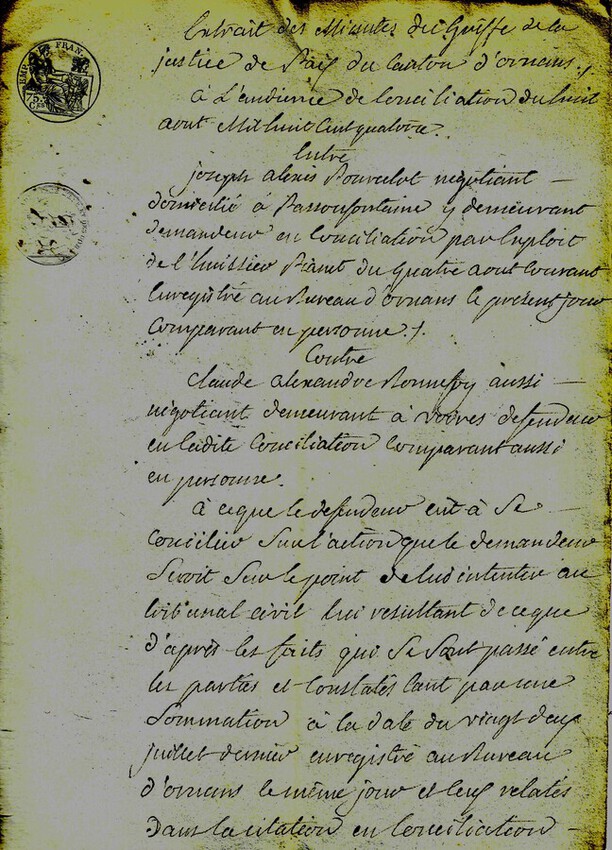 EMP. FRAN.
75
Extrait des Minutes du Greffe de la
justice de Paix du Canton d'ornans./
à L'audience de Conciliation du huit
aout Mil huit Cent quatorze.
Entre
joseph alexis Pourcelot négotiant —
domicilié à Passonfontaine y demeurant
demandeur en Conciliation par Exploit
de l'huissier du quatre aout Courant
Enregistré au Bureau d'ornans le présent jour
Comparant en personne./.
Contre
Claude alexandre Bonnefoy aussi —
négotiant demeurant à Voires defendeur
en Ladite Conciliation Comparant aussi
en personne.
à ce que le defendeur eut à Se —
Concilier Sur l'action que le demandeur
Seroit Sur le point de lui intenter au
tribunal civil lui resultant de ce que
d'après les faits qui Se Sont passé entre
les parties et Constatés tant par une
Sommation à la date du vingt deux
juillet dernier enregistré au Bureau
d'ornans le même jour et ceux relatés
Dans la citation en Conciliation —